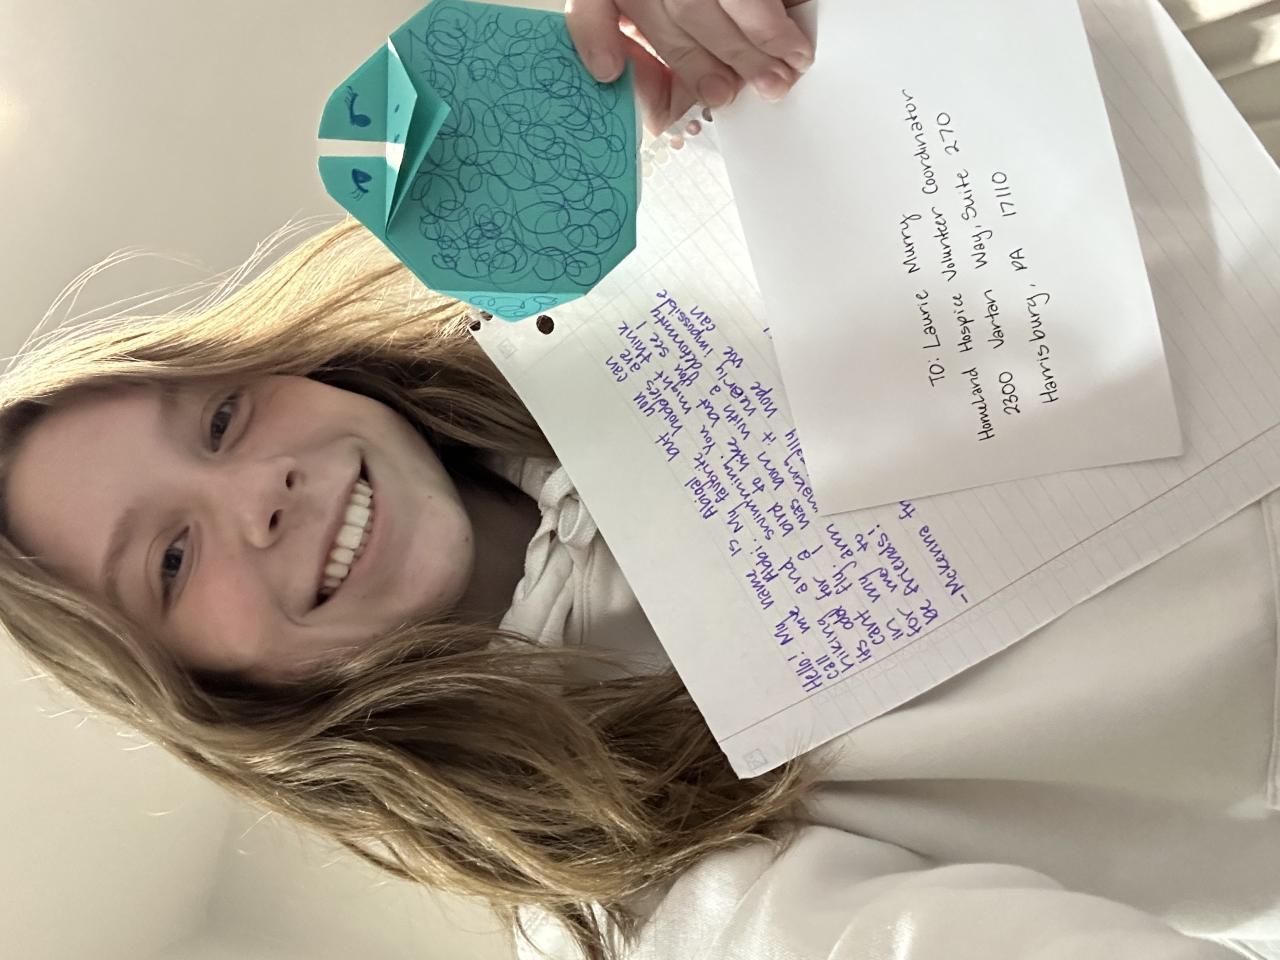 Hello! My name is Abigal but you can
call me Abbi. My favorite hobbies are
hiking and swimming. You might think
its odd for a bird to hike but as you see I
can't fly. I was born it with a deformity
in my arm making it nearly impossible
for me to really
be friends! hope we can
-McKenna
TO: Laurie Murry
Homeland Hospice Volunteer Coordinator
2300 Vartan Way, Suite 270
Harrisburg, PA 17110